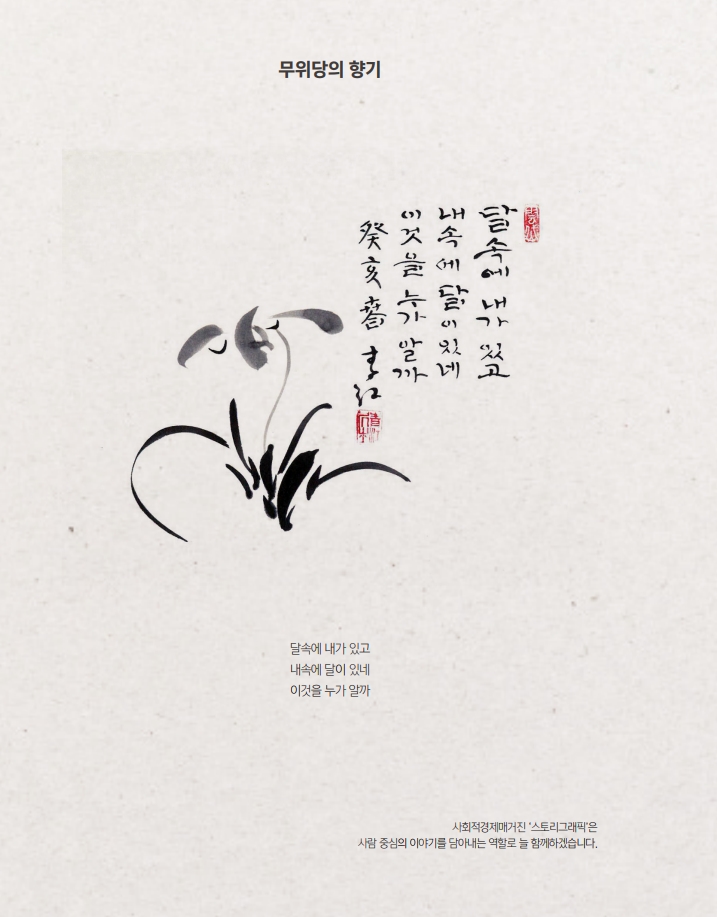 무위당의 향기
달속에 내가 있고
내속에 달이 있네
이것을 누가 알까
癸亥 春 青江
달속에 내가 있고
내속에 달이 있네
이것을 누가 알까
사회적경제매거진 '스토리그래픽'은
사람 중심의 이야기를 담아내는 역할로 늘 함께하겠습니다.